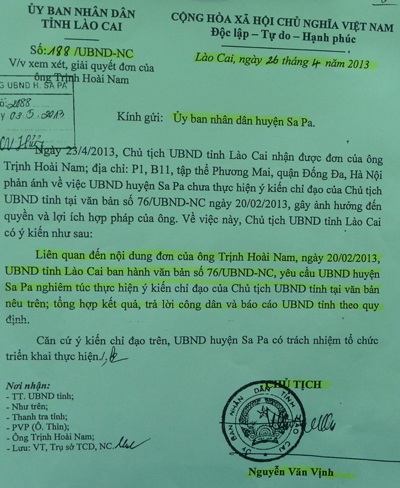 ỦY BAN NHÂN DÂN
TỈNH LÀO CAI
CỘNG HÒA XÃ HỘI CHỦ NGHĨA VIỆT NAM
Độc lập – Tự do – Hạnh phúc
Số:188/UBND-NC
V/v xem xét, giải quyết đơn của
ông Trịnh Hoài Nam
Lào Cai, ngày 26 tháng 4 năm 2013
UBND H. SA PA
2088
03.5.2013
Kính gửi: Ủy ban nhân dân huyện Sa Pa.
Ngày 23/4/2013, Chủ tịch UBND tỉnh Lào Cai nhận được đơn của ông
Trịnh Hoài Nam; địa chỉ: P1, B11, tập thể Phương Mai, quận Đống Đa, Hà Nội
phản ánh về việc UBND huyện Sa Pa chưa thực hiện ý kiến chỉ đạo của Chủ tịch
UBND tỉnh tại văn bản số 76/UBND-NC ngày 20/02/2013, gây ảnh hưởng đến
quyền và lợi ích hợp pháp của ông. Về việc này, Chủ tịch UBND tỉnh Lào Cai
có ý kiến như sau:
Liên quan đến nội dung đơn của ông Trịnh Hoài Nam, ngày 20/02/2013,
UBND tỉnh Lào Cai ban hành văn bản số 76/UBND-NC, yêu cầu UBND huyện
Sa Pa nghiêm túc thực hiện ý kiến chỉ đạo của Chủ tịch UBND tỉnh tại văn bản
nêu trên; tổng hợp kết quả, trả lời công dân và báo cáo UBND tỉnh theo quy
định.
Căn cứ ý kiến chỉ đạo trên, UBND huyện Sa Pa có trách nhiệm tổ chức
triển khai thực hiện./.
Nơi nhận:
- TT. UBND tỉnh;
- Như trên;
- Thanh tra tỉnh;
- PVP (Ô. Thìn);
- Ông Trịnh Hoài Nam;
- Lưu: VT, Trụ sở TCD, NC.
CHỦ TỊCH
Nguyễn Văn Vịnh